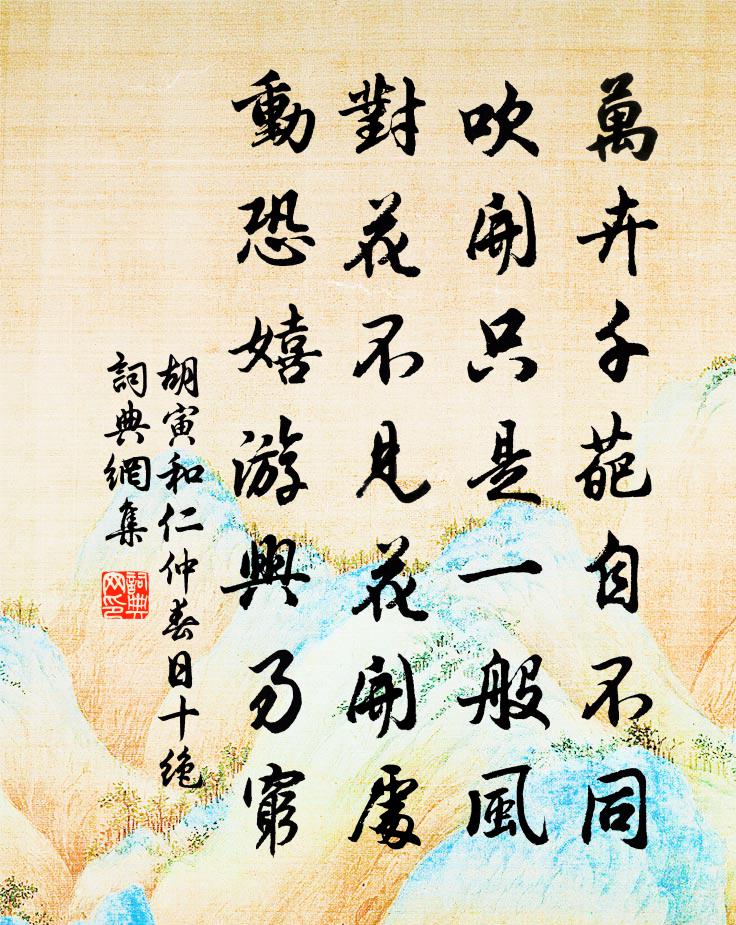 萬卉千葩自不同
吹開只是一般風
對花不見花開處
動恐嬉游興易窮
胡寅和仁仲春日十絶
詞典網集
詞典
网印